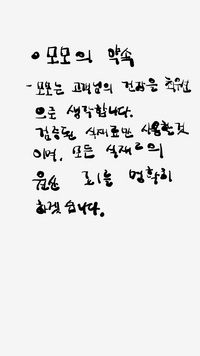 • 모모의 약속
- 모모는 고객님의 건강을 최우선
으로 생각합니다.
검증된 식재료만 사용할것
이며, 모든 식재료의
원산 표시를 명확히
하겠습니다.